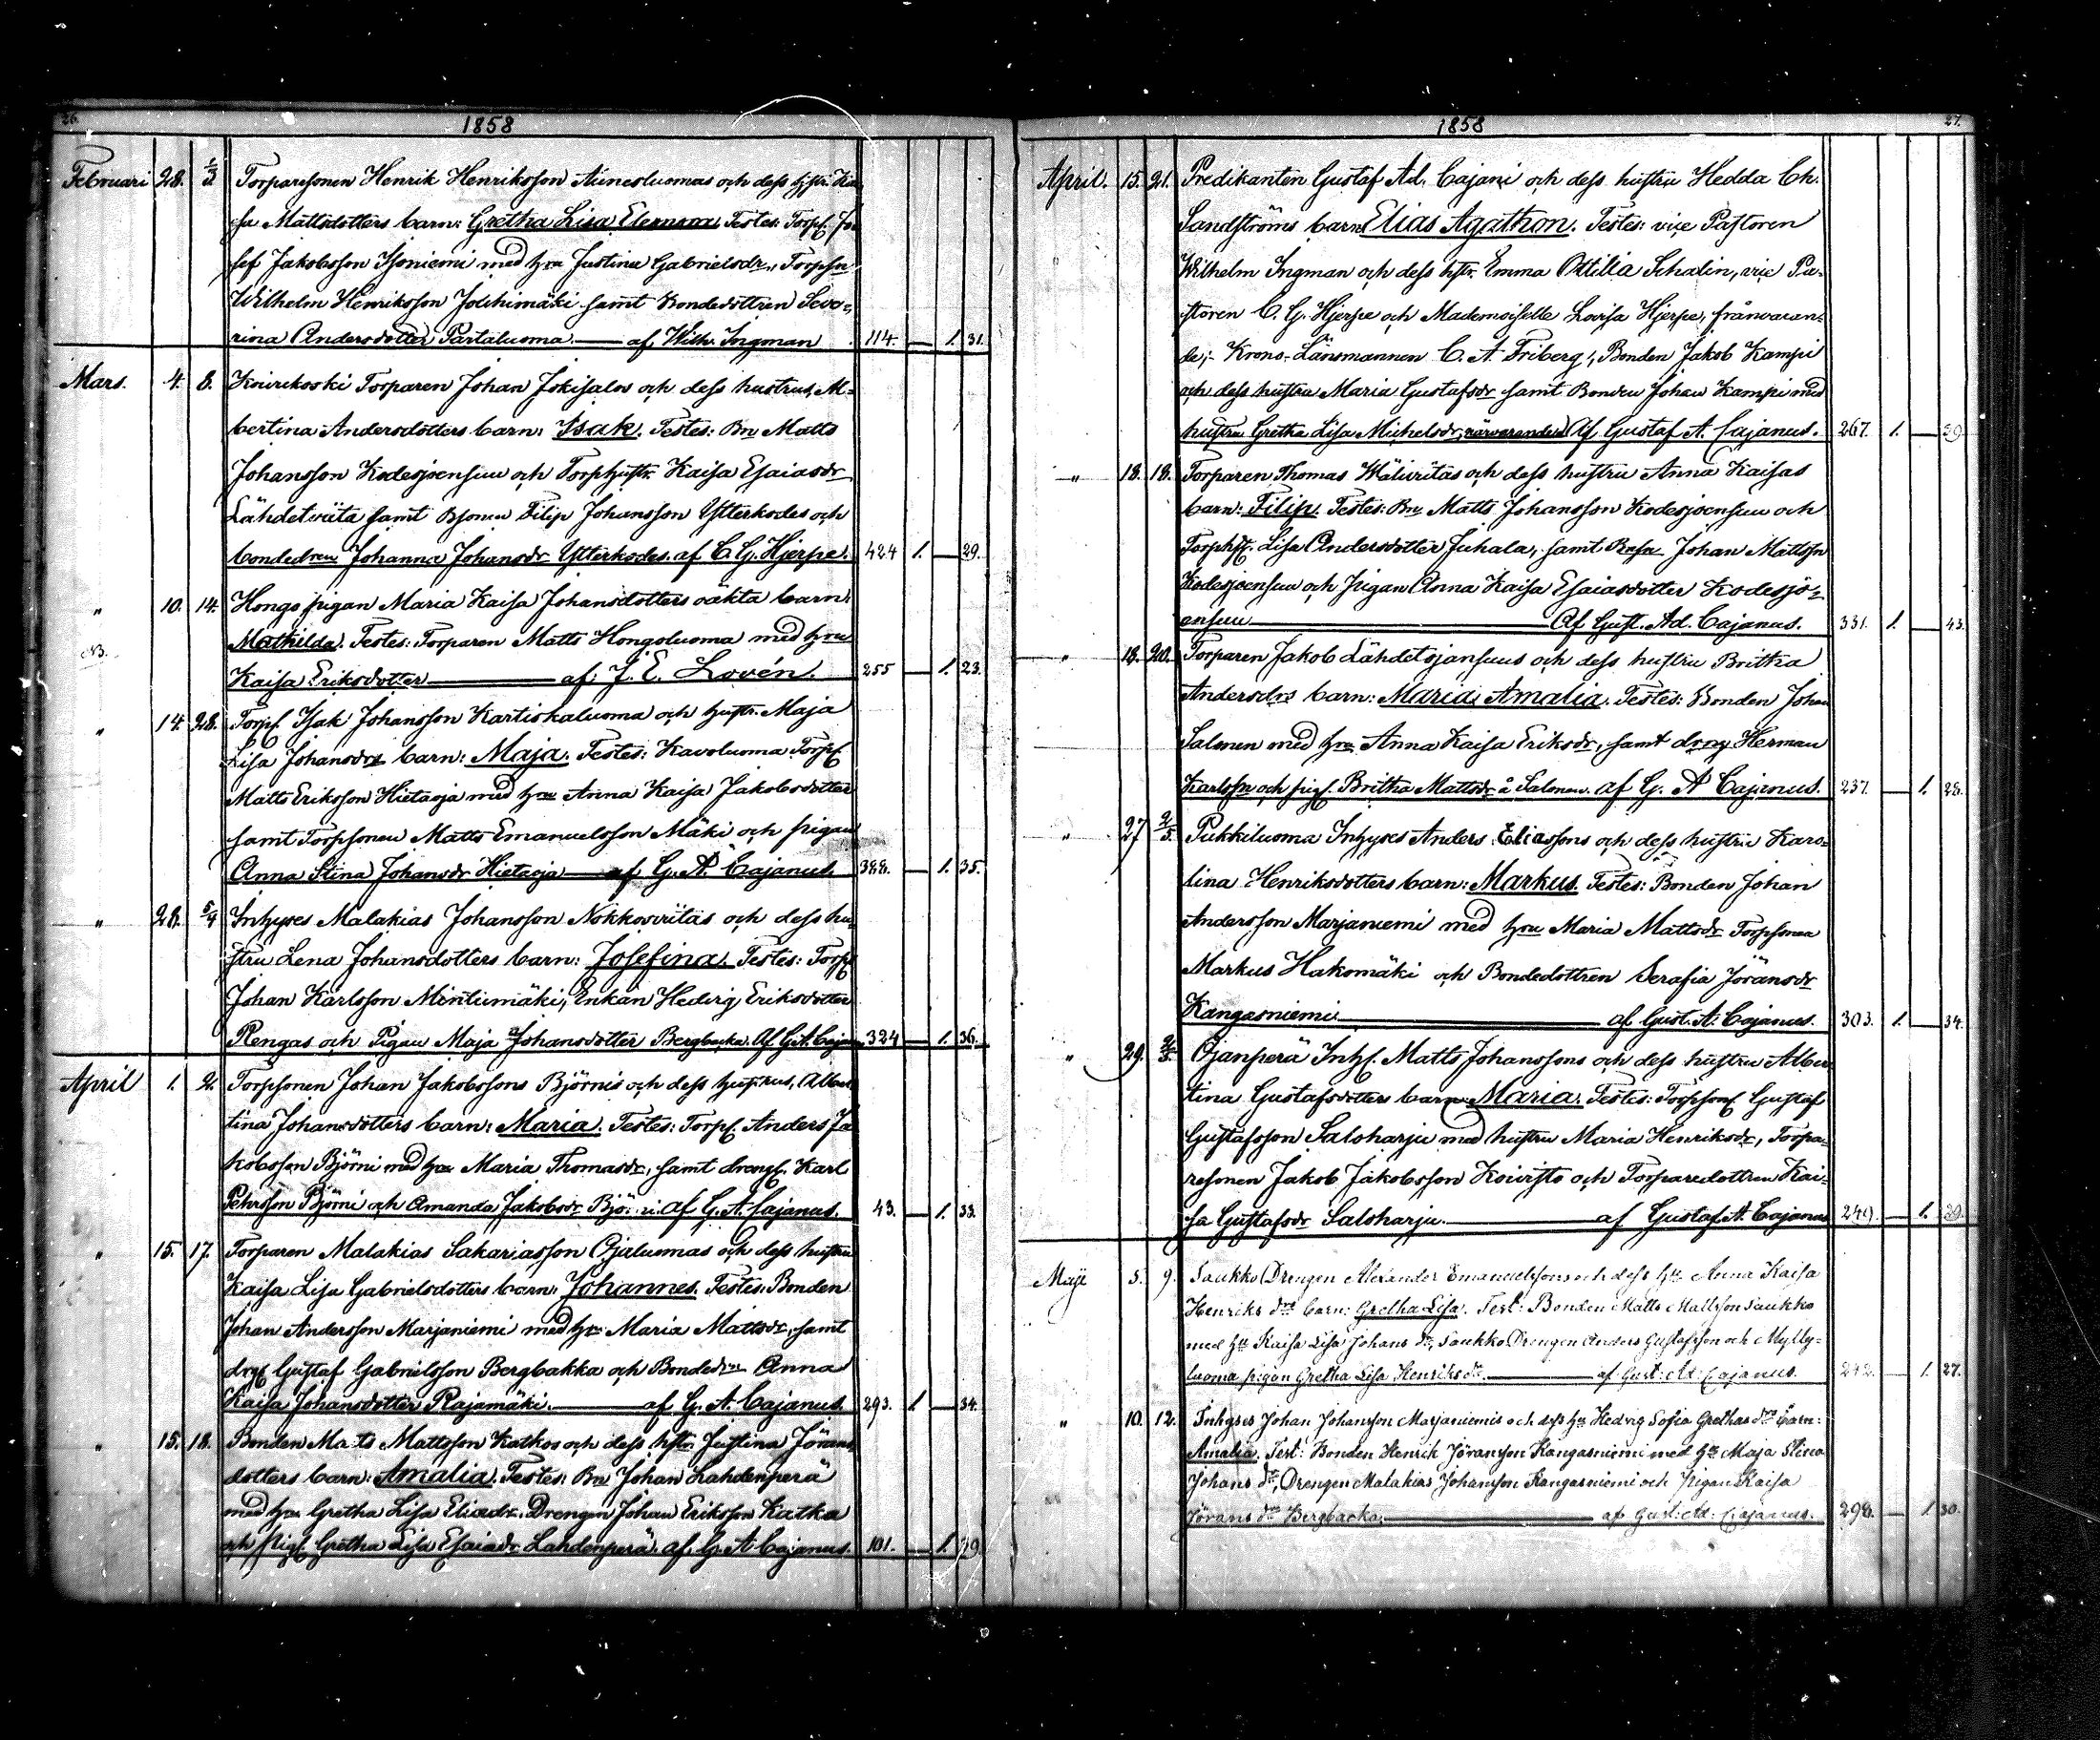 26.
1858
Februari 28. 1/3 Torparesonen Henrik Henriksson Aunesluomas och dess hstr. Kai-
sa Mattsdotters barn: Gretha Lisa Elenora. Testes: Torpf. Jo-
sef Jakobsson Isoniemi med hru Justina Gabrielsdr., Torpsn
Wilhelm Henriksson Jouhimäki samt Bondedottren Seve-
rina Andersdotter Partaluoma — af Wilh. Ingman 114. — 1. 31.
Mars. 4. 8. Koivikoski Torparen Johan Jokisalos och dess hustrus, Al-
bertina Andersdotters barn: Isak. Testes: Bn Matts
Johansson Kodesjoensuu och Torphustr. Kaisa Esaiasdr
Lähdeviita samt Bsonen Filip Johansson Ytterkodes och
bondedren Johanna Johansdr Ytterkodes. af C. G. Hjerpe. 424 1. — 29.
" 10. 14. Hongo pigan Maria Kaisa Johansdotters oäkta barn:
Mathilda. Testes: Torparen Matts Hongoluoma med hru
NB.
Kaisa Eriksdotter — af J. E. Lovén. 255 — 1. 23.
" 14. 28. Torpf. Isak Johansson Kartiskaluoma och hustr. Maja
Lisa Johansdrs barn: Maja. Testes: Kavoluoma Torpf.
Matts Eriksson Hietaoja med hru Anna Kaisa Jakobsdotter
samt Torpsonen Matts Emanuelsson Mäki och pigan
Anna Stina Johansdr Hietaoja — af G. A. Cajanus. 388. — 1. 35.
" 28. 5/4 Inhyses Malakias Johansson Nokkosviitas och dess hu-
stru Lena Johansdotters barn: Josefina. Testes: Torpf
Johan Karlsson Minttumäki, Enkan Hedvig Eriksdotter
Rengas och Pigan Maja Johansdotter Bergbacka. Af G. A. Cajan. 324 — 1. 36.
April 1. 2. Torpsonen Johan Jakobssons Björnis och dess hustrus, Alber-
tina Johansdotters barn: Maria. Testes: Torpf. Anders Ja-
kobsson Björni med hru Maria Thomasdr., samt drengf. Karl
Pehrsson Björni och Amanda Jakobsdr Björni af G. A. Cajanus. 43. — 1. 33.
" 15. 17. Torparen Malakias Sakariasson Ojaluomas och dess hustru
Kaisa Lisa Gabrielsdotters barn: Johannes. Testes: Bonden
Johan Andersson Marjaniemi med hru Maria Mattsdr. samt
drgf. Gustaf Gabrielsson Bergbakka och Bondedren Anna
Kaisa Johansdotter Rajamäki. — af G. A. Cajanus. 293. 1. — 34.
" 15. 18. Bonden Matts Mattsson Katkos och dess hstr. Justina Jörans
dotters barn: Amalia. Testes: Bn Johan Lahdenperä
med hru Gretha Lisa Eliadr. Drengen Johan Eriksson Katka
och pigf. Gretha Lisa Esaiadr Lahdenperä. af. G. A. Cajanus. 101. — 1. 29.
27.
1858
April. 15. 21. Predikanten Gustaf Ad. Cajani och dess hustru Hedda Ch.
Sandströms barn: Elias Agathon. Testes: vice Pastoren
Wilhelm Ingman och dess hstr. Emma Ottilia Schalin, vice Pa-
storen C. G. Hjerpe och Mademoiselle Lovisa Hjerpe, frånvaran-
de; - Krono-Länsmannen C. A. Friberg, Bonden Jakob Kampi
och dess hustru Maria Gustafsdr samt Bonden Johan Kampi med
hustru Gretha Lisa Michelsdr, närvarande Af Gustaf A. Cajanus. 267. 1. — 39.
" 18. 18. Torparen Thomas Wäliviitas och dess hustru Anna Kaisas
barn: Filip. Testes: Bn Matts Johansson Kodesjoensuu och
Torphst. Lisa Andersdotter Juhala, samt Johan Mattssn
Kodesjoensuu och pigan Anna Kaisa Esaiasdotter Kodesjo-
ensuu — Af Gust. Ad. Cajanus. 331. 1. — 43.
" 18. 20. Torparen Jakob Lähdetsjansuus och dess hustru Britha
Andersdrs barn: Maria Amalia. Testes: Bonden Johan
Salonen med hru Anna Kaisa Eriksdr, samt dreng Herman
Karlsson och pigf. Britha Mattsdr å Salonen. af G. A Cajanus. 237. — 1. 28.
" 27 2/5. Pukkiluoma Inhyses Anders Eliassons och dess hustru Karo-
lina Henriksdotters barn: Markus. Testes: Bonden Johan
Andersson Marjaniemi med hru Maria Mattsdr Torpsonen
Markus Hakomäki och Bondedottren Serafia Jöransdr
Kangasniemi — af Gust. A. Cajanus. 303. 1. — 34.
" 29. 2/5. Ojanperä Inhf. Matts Johanssons och dess hustru Alber-
tina Gustafsdotters barn Maria. Testes: Torpsonf Gustaf
Gustafsson Saloharju med hustru Maria Henriksdr, Torpa-
resonen Jakob Jakobsson Koivisto och Torparedottren Kai-
sa Gustafsdr Saloharju. — af Gustaf A. Cajanus 249. — 1. 30.
Maji 5. 9. Saukko Drengen Alexander Emanuelssons och dess hu Anna Kaisa
Henriks drs barn: Gretha Lisa. Test: Bonden Matts Mattsson Saukko
med hu Kaisa Lisa Johans dr, Saukko Drengen Anders Gustafsson och Mylly-
luoma pigan Gretha Lisa Henriks dr. — af Gust: Ad: Cajanus. 242. — 1. 27.
" 10. 12. Inhyses Johan Johansson Marjaniemis och dess hu Hedvig Sofia Grethas drs barn:
Amalia. Test: Bonden Henrik Jöransson Kangasniemi med hu Maja Stina
Johans dr, Drengen Malakias Johansson Kangasniemi och pigan Kaisa
Jörans dr Bergbacka. — af Gust: Ad: Cajanus. 298. — 1. 30.